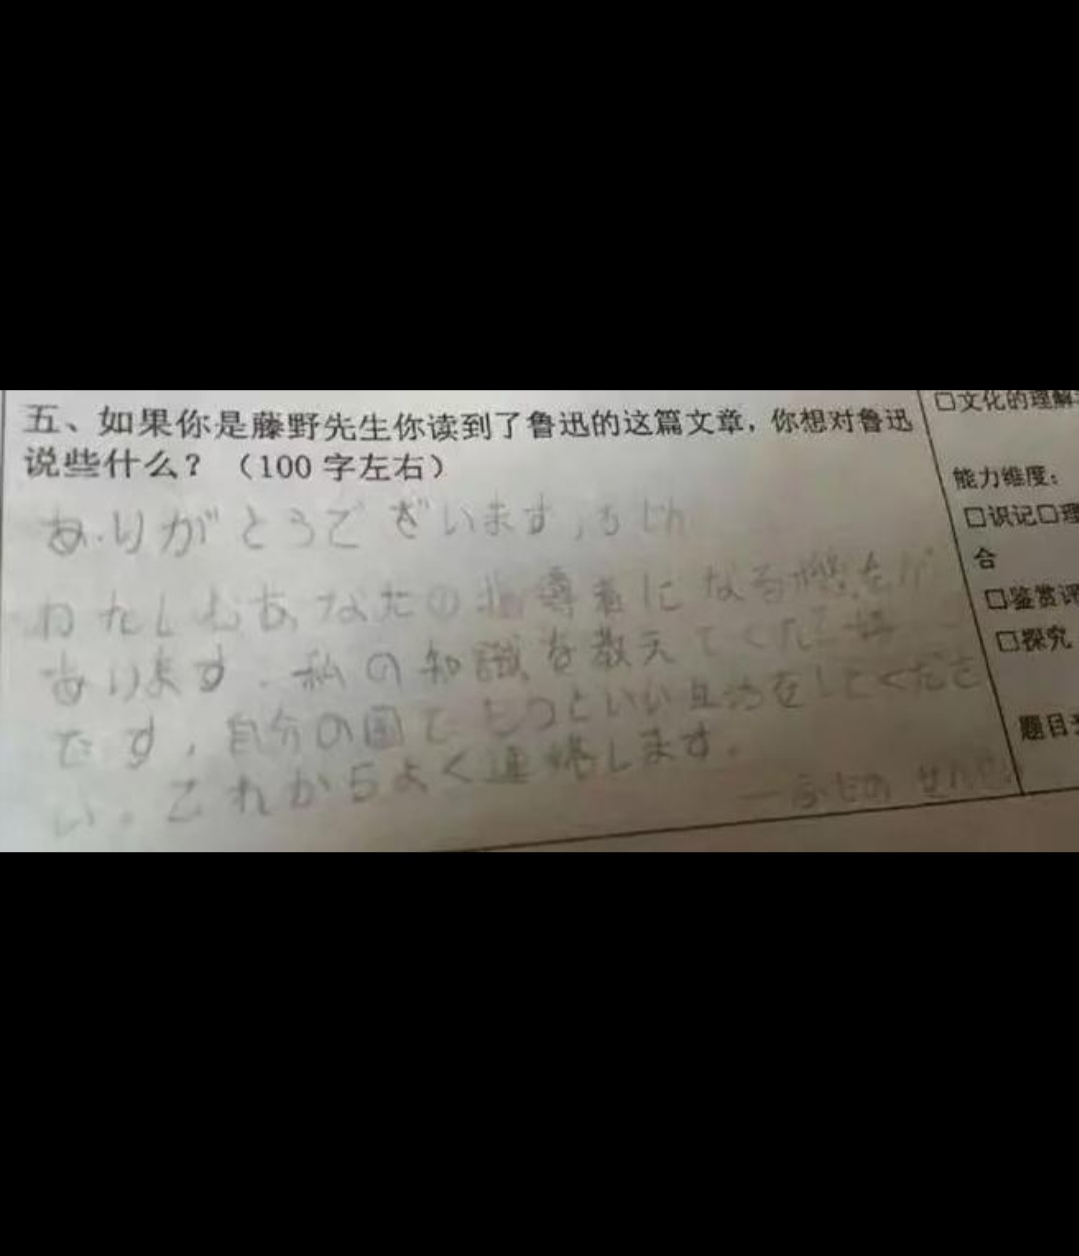 五、如果你是藤野先生你读到了鲁迅的这篇文章，你想对鲁迅
说些什么？（100 字左右）
ありがとうございます,ろじん
わたしもあなたの指導者になる機会が
あります．私の知識を教えてくだ
です，自分の国でもっといい生活をしてくださ
い。これからよく連絡します。
—ふじの せんせい
□文化的理解
能力维度：
□识记□理
合
□鉴赏评
□探究
题目